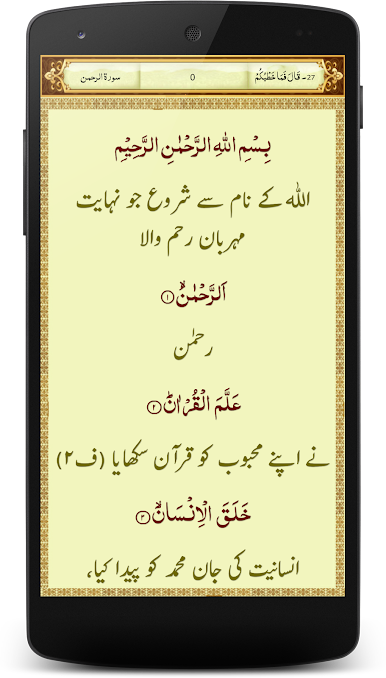 27- قَالَ فَمَا خَطْبُكُمْ 0 سورۃ الرحمن
بِسْمِ اللهِ الرَّحْمٰنِ الرَّحِيْمِ
اللہ کے نام سے شروع جو نہایت
مہربان رحم والا
اَلرَّحْمٰنُۙ۝۱
رحمٰن
عَلَّمَ الْقُرْاٰنَؕ۝۲
نے اپنے محبوب کو قرآن سکھایا (ف۲)
خَلَقَ الْاِنْسَانَۙ۝۳
انسانیت کی جان محمد کو پیدا کیا،